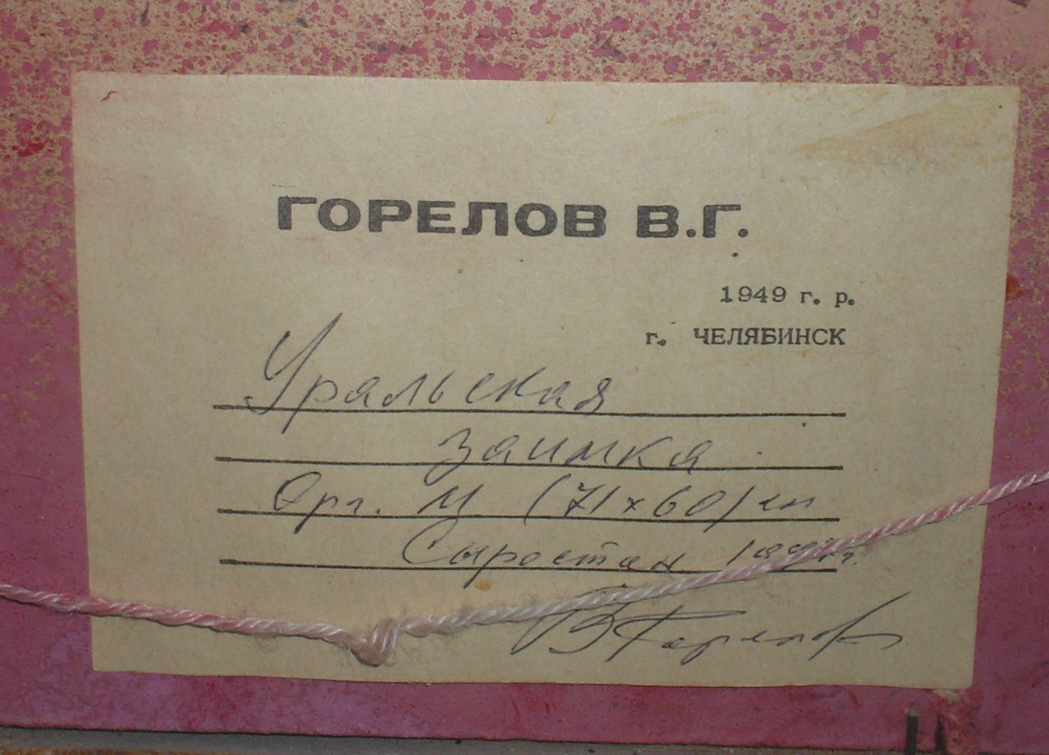 ГОРЕЛОВ В.Г.
1949 г. р.
г. ЧЕЛЯБИНСК
Уральская
заимка
Орг. М (71х60)см
Сыростан
В Горелов